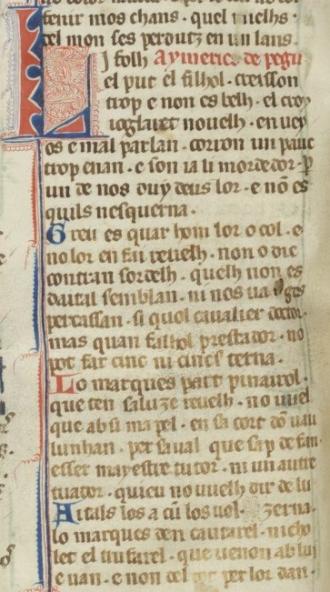 tenir mos chans · quel vuelhs ·
del mon ses perdutz en un lans ·
Li folh Aymeric de pegu
el put el filhol · creisson
trop e non es belh · el croy
ioglaret nouelh · en uey
os e mal parlan · corron un pauc
trop enan · e son ia li mordedor · p
un de nos duy deus lor · e nō es
quils nesquerna ·
Greu es quar hom lor o col · e
no lor en fai reuelh · non o dic
contran sordelh · quelh non es
daital semblan · ni nos ua
percassan · si quol caualier doctor ·
mas quan filhol prestador · no
pot far cinc ni cincs terna ·
Lo marques part pinairol ·
que ten saluze reuelh · no vuel
que ab si ma pel · en sa cort dō vau
lunhan · per saual que sap de
esser mayestre tutor · ni un autre
tuador · quieu no vuelh dir de lu
Aitals los a cū los uol ·
lo marques den cantarel · nicho
let el trufarel · que uenon ab lui
e uan · e non cel per lor dan ·